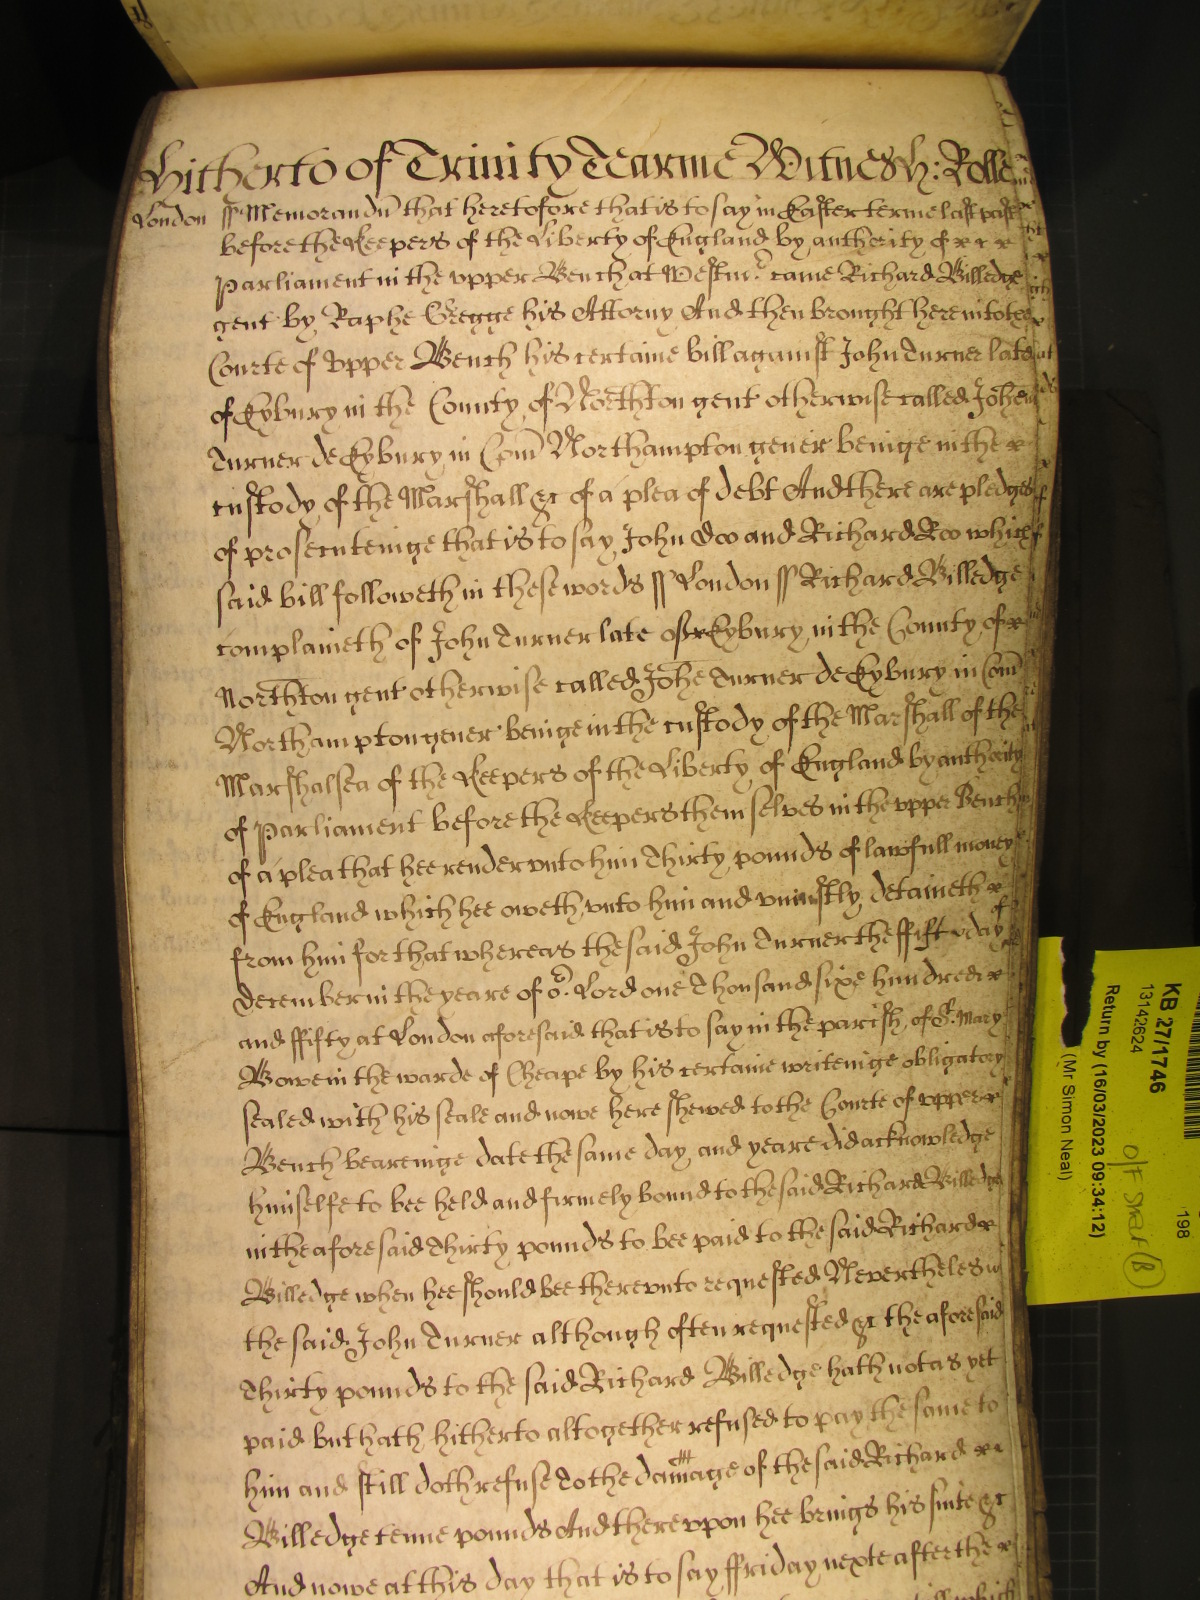 Hitherto of Trinity Tearme Witnes H: Rolle
London ss Memorandũ that heretofore that is to say in Easter terme last past
before the Keepers of the Liberty of England by authority of x x x
Parliament in the upper Bench at Westmr. came Richard Billedge
gent by Raphe Gregge his Attorny And then brought here into the
Courte of Upper Bench his certaine bill against John Turner late
of Eybury in the County of Northton gent otherwise called Johem
Turner de Eybury in Com Northampton gener beinge in the x
custody of the Marshall &c of a plea of debt And there are pledges
of prosecuteinge that is to say John Doo and Richard Roo which
said bill followeth in these words ss London ss Richard Billedge
complaineth of John Turner late of x Eybury in the County of x
Northton gent otherwise called Johe Turner de Eybury in Com
Northampton gener beinge in the custody of the Marshall of the
Marshalsea of the Keepers of the Liberty of England by authority
of Parliament before the Keepers themselves in the upper Bench
of a plea that hee render unto him Thirty pounds of lawfull money
of England which hee oweth unto him and uniustly detaineth x
from him for that whereas the said John Turner the ffift day of
December in the yeare of or. Lord one Thousand sixe hundred x
and ffifty at London aforesaid that is to say in the parish of St. Mary
Bowe in the warde of Cheape by his certaine writeinge obligatory
sealed with his seale and nowe here shewed to the Courte of upper x
Bench beareinge date the same day and yeare did acknowledge
himselfe to bee held and firmely bound to the said Richard Billedge
in the aforesaid Thirty pounds to bee paid to the said Richard x
Billedge when hee should bee thereunto requested Nevertheles
the said John Turner although often requested &c the aforesaid
Thirty pounds to the said Richard Billedge hath not as yet
paid but hath hitherto altogether refused to pay the same to
him and still doth refuse To the damage of the said Richard x x
Billedge tenne pounds And thereupon hee brings his suite &c
And nowe at this day that is to say ffriday nexte after the x
KB 27/1746
13142624
Return by (16/03/2023 09:34:12)
(Mr Simon Neal)
198
Off Site (B)